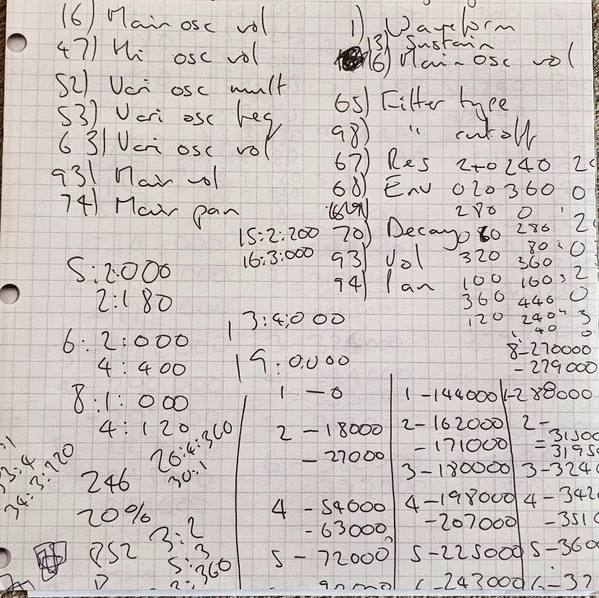 16) Main osc vol
47) Hi osc vol
52) Vari osc mult
53) Vari osc freq
63) Vari osc vol
93) Main vol
74) Main pan
1) Waveform
3) Sustain
16) Main osc vol
65) Filter type
98) " cutoff
67) Res 240 240
68) Env 020 360 0
280 0
70) Decay 080 280 2
80 0
93) Vol 320 360
94) Pan 100 160 2
360 440 0
120 240 3
40 0
8-270000
-279000
15:2:200
16:3:000
5:2:000
2:180
6:2:000
4:400
8:1:000
4:120
13:4:000
19:0:000
26:4:360
30:1
34:3:220
246
20%
3:2
5:3
2:360
1 - 0
2 - 18000
- 27000
4 - 54000
- 63000
5 - 72000
1 - 144000
2 - 162000
- 171000
3 - 180000
4 - 198000
- 207000
5 - 225000
6 - 243000
1 - 288000
2 -
3 - 3240
4 - 342
- 351
5 - 360
6 - 37